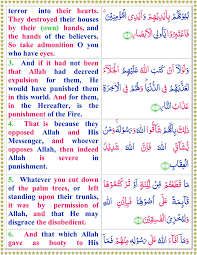 terror into their hearts.
They destroyed their houses
by their (own) hands, and
the hands of the believers.
So take admonition O you
who have eyes.
3. And if it had not been
that Allah had decreed
expulsion for them, He
would have punished them
in this world. And for them,
in the Hereafter, is the
punishment of the Fire.
4. That is because they
opposed Allah and His
Messenger, and whoever
opposes Allah, then indeed
Allah is severe in
punishment.
5. Whatever you cut down
of the palm trees, or left
standing upon their trunks,
it was by permission of
Allah, and that He may
disgrace the disobedient.
6. And that which Allah
gave as booty to His
بُيُوتَهُمْ بِأَيْدِيهِمْ وَأَيْدِي الْمُؤْمِنِينَ
فَاعْتَبِرُوا يَا أُولِي الْأَبْصَارِ
وَلَوْلَا أَنْ كَتَبَ اللَّهُ عَلَيْهِمُ الْجَلَاءَ
لَعَذَّبَهُمْ فِي الدُّنْيَا وَلَهُمْ فِي الْآخِرَةِ
عَذَابُ النَّارِ
ذَلِكَ بِأَنَّهُمْ شَاقُّوا اللَّهَ وَرَسُولَهُ وَمَنْ
يُشَاقِّ اللَّهَ فَإِنَّ اللَّهَ شَدِيدُ
الْعِقَابِ
مَا قَطَعْتُمْ مِنْ لِينَةٍ أَوْ تَرَكْتُمُوهَا
قَائِمَةً عَلَى أُصُولِهَا فَبِإِذْنِ اللَّهِ وَلِيُخْزِيَ
الْفَاسِقِينَ
وَمَا أَفَاءَ اللَّهُ عَلَى رَسُولِهِ مِنْهُمْ